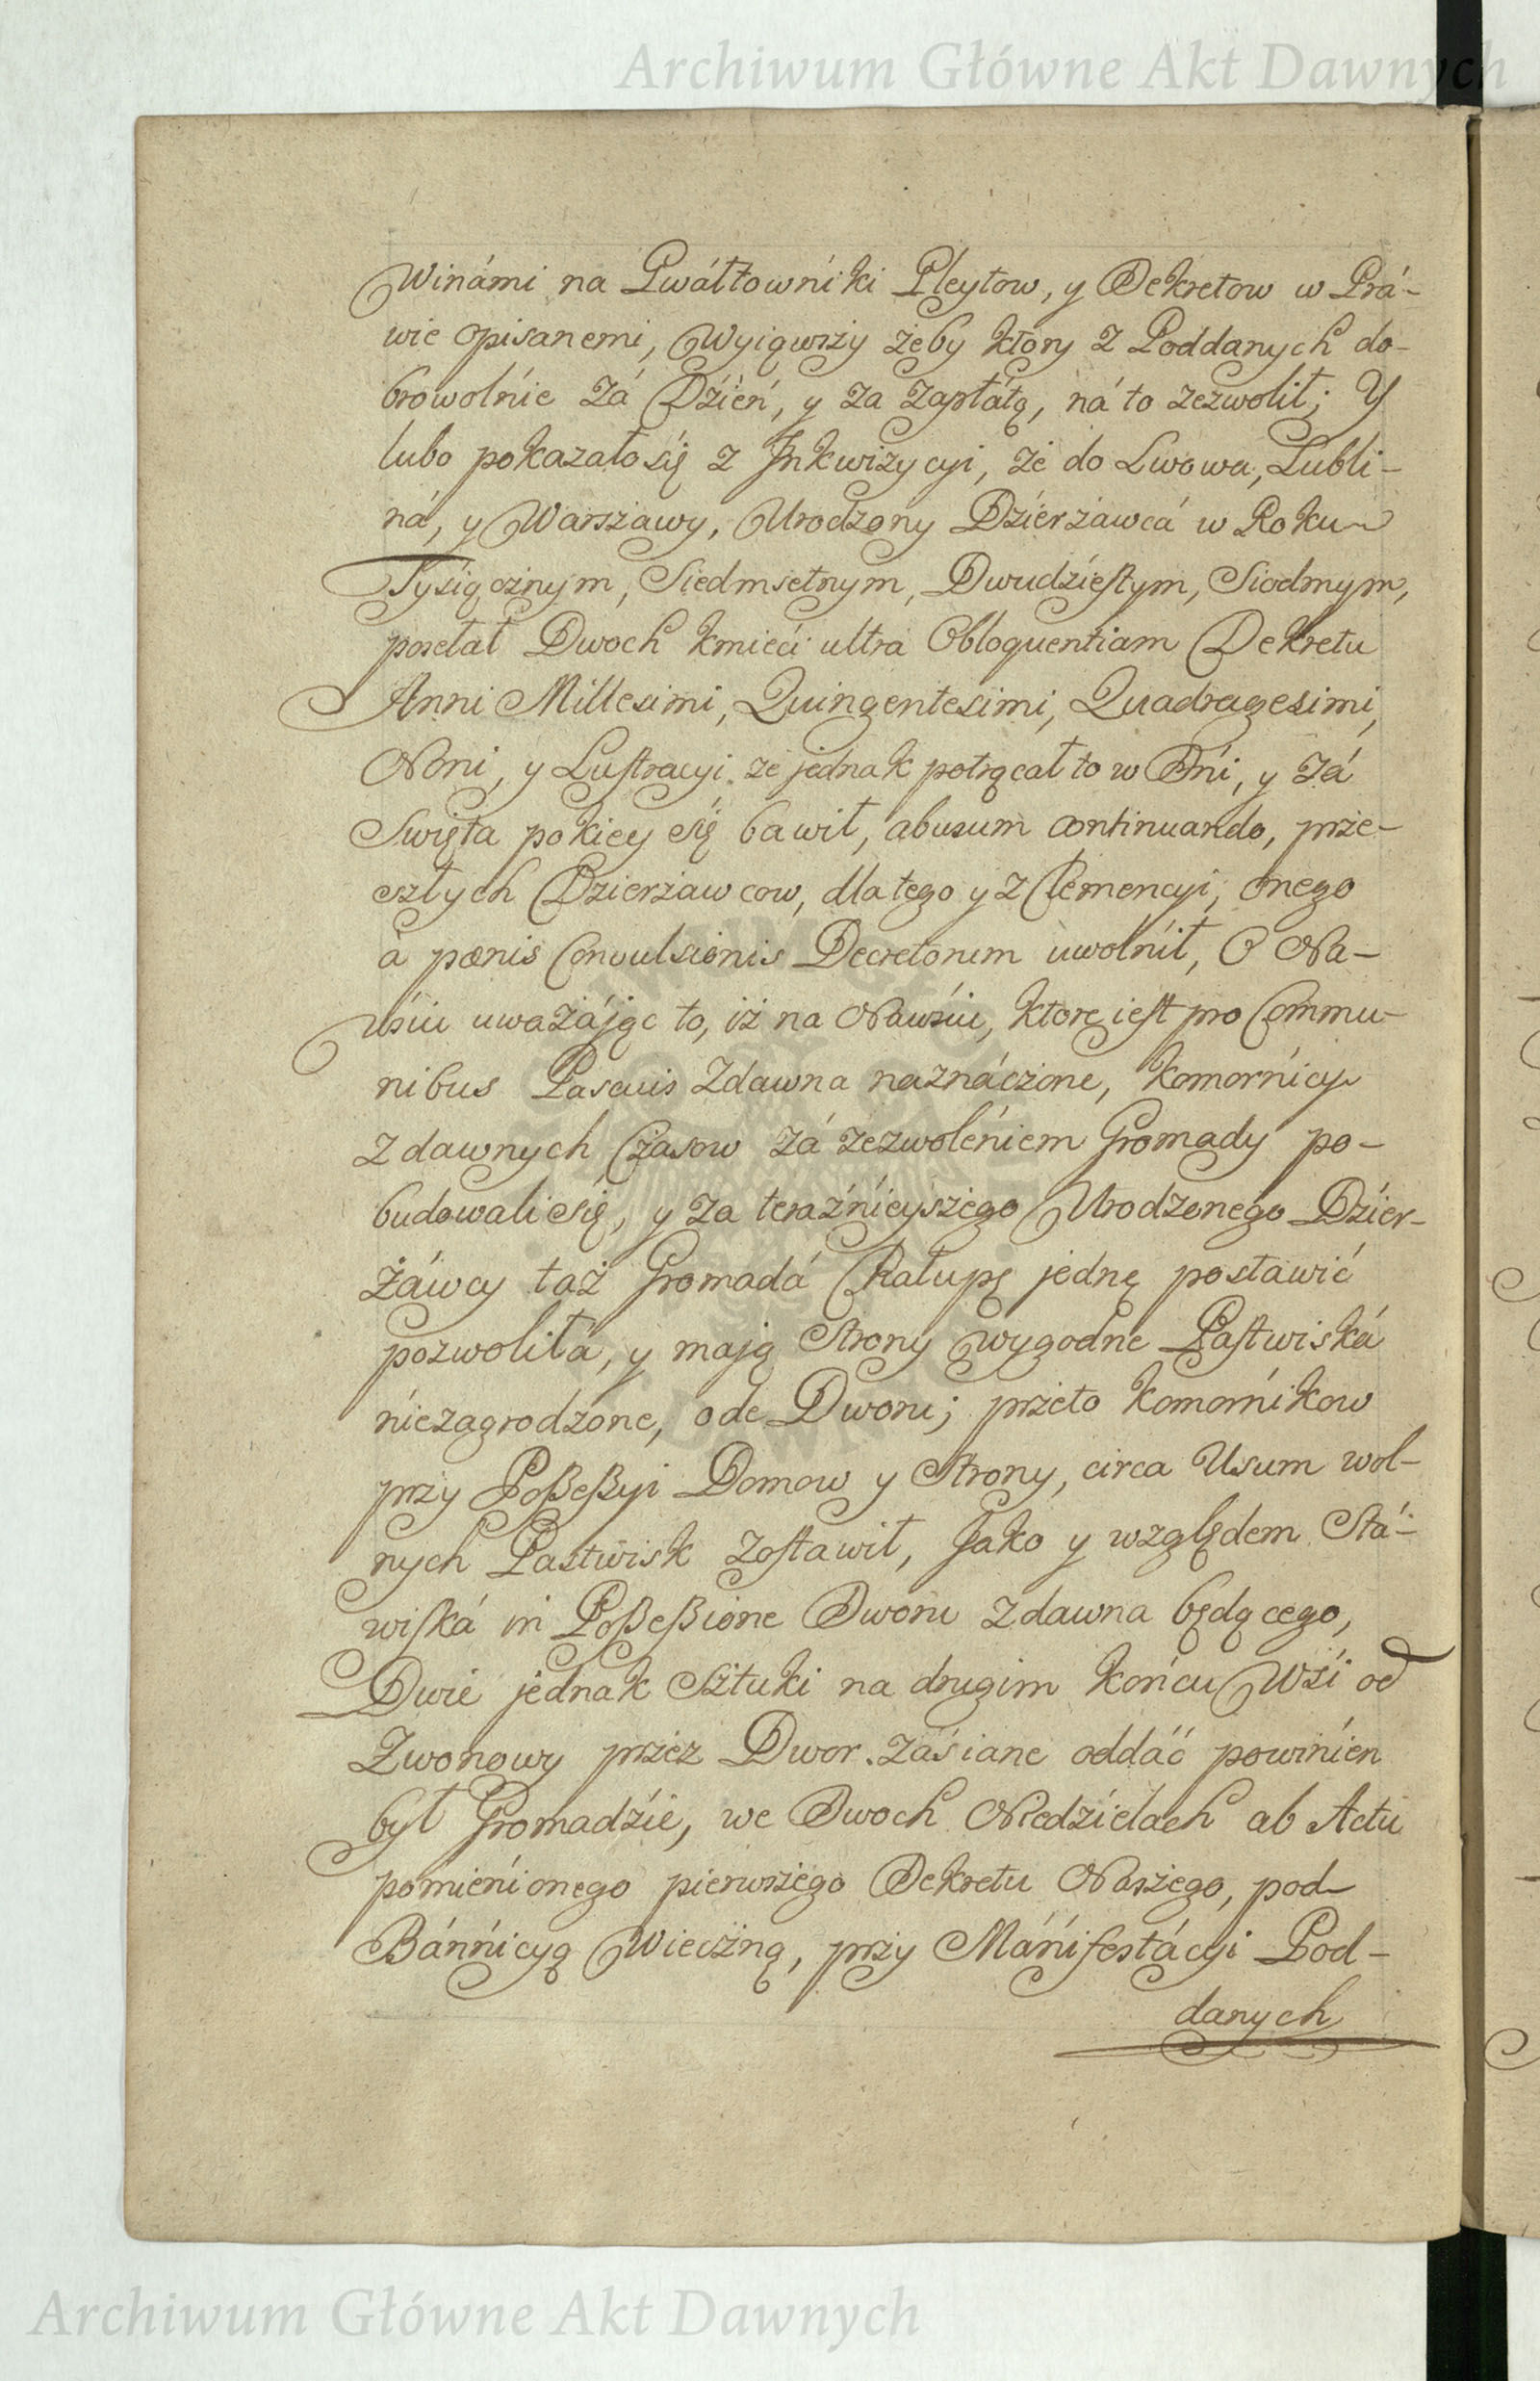 Archiwum Główne Akt Dawnych
Winámi na Gwáłtowniki Gleytow, y Dekretow w Prá-
wie opisanemi, Wyiąwszy żeby który z Poddanych do-
browolnie zá Dźień, y za zapłátą, ná to zezwolił; Y
lubo pokazało się z Jnkwizycyi, że do Lwowa, Lubli-
ná, y Warszawy, Urodzony Dzierzawcá w Roku
Tysiącznym, Siedmsetnym, Dwudziestym, Siodmym,
posełał Dwoch kmieci ultra Obloquentiam Dekretu
Anni Millesimi, Quingentesimi, Quadragesimi,
Noni, y Lustracyi że jednak potrącał to w Dni, y zá
Swięta pokiey się bawił, abusum continuando, prze-
szłych Dzierżawcow, dla tego y z Clemencyi, onego
à pœnis Convulsionis Decretorum uwolnił, O Na-
wśiu uważájąc to, iż na Nawśiu, ktore iest pro Commu-
nibus Pascuis zdawna naznáczone, komornicy
z dawnych Czasow zá zezwoleniem Gromady po-
budowali się, y za teraźnieyszego Urodzonego Dzier-
żáwcy taż Gromadá Chałupę jednę postawić
pozwoliłá, y mają Strony wygodne Pastwiská
niezagrodzone, ode Dworu; przeto komornikow
przy Poßeßyi Domow y Strony, circa Usum wol-
nych Pastwisk zostawił, Jako y względem Stá-
wiská in Poßeßione Dworu zdawna będącego,
Dwie jednak Sztuki na drugim końcu Wśi od
Zwonowy przez Dwor zaśiane oddáć powinien
był Gromadźie, we Dwoch Niedzielach ab Actu
pomienionego pierwszego Dekretu Naszego, pod
Bánnicyą Wieczną, przy Mánifestácyi Pod-
danych
Archiwum Główne Akt Dawnych